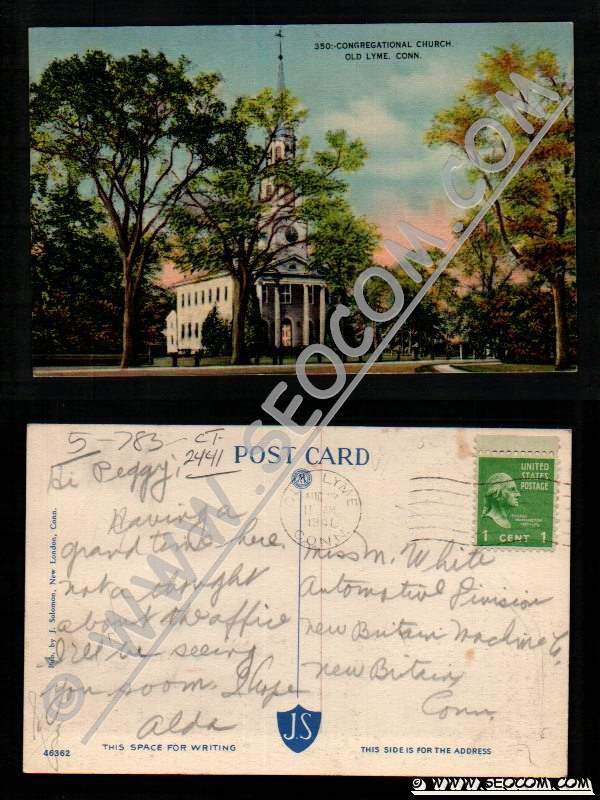 350:-CONGREGATIONAL CHURCH.
OLD LYME, CONN.
© WWW.SEOCOM.COM
5-783 CT-
2441
POST CARD
Hi Peggy;
Having a
grand time here,
not a thought
about the office
I'll be seeing
you soom. I hope
Alda
Pub. by J. Solomon, New London, Conn.
46362
THIS SPACE FOR WRITING
J.S
LYME
CONN.
UNITED
STATES
POSTAGE
1 CENT 1
Miss M. White
Automotive Division
New Britain Machine Co.
New Britain
Conn.
THIS SIDE IS FOR THE ADDRESS
© WWW.SEOCOM.COM